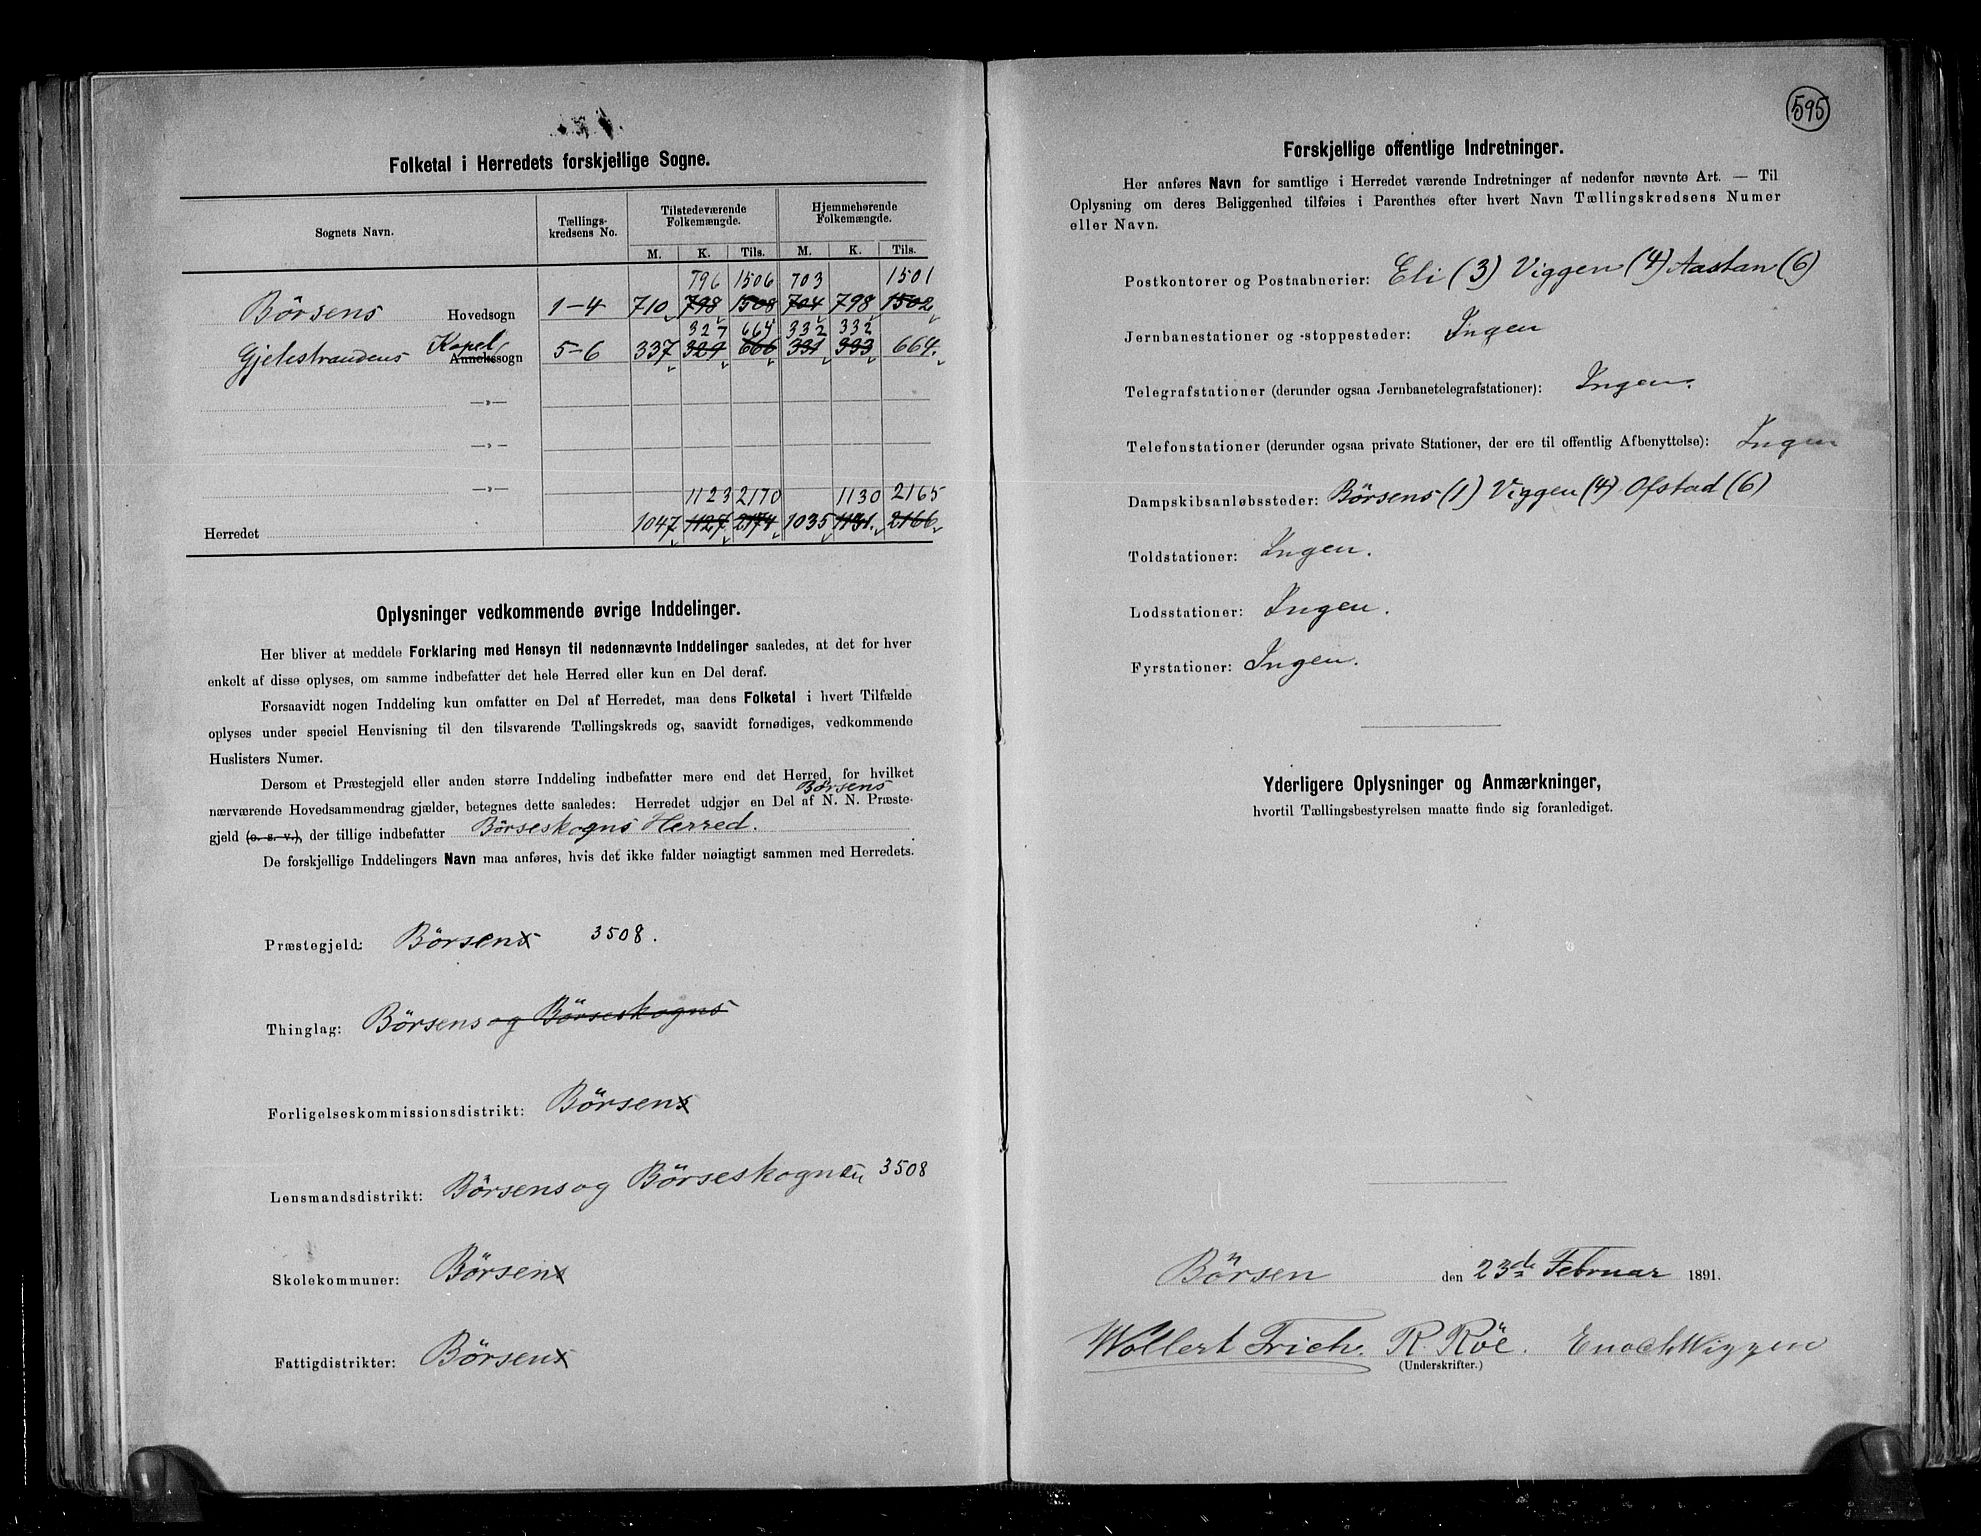 Folketal i Herredets forskjellige Sogne.
Sognets Navn. Tællings-kredsens No. Tilstedeværende Folkemængde. Hjemmehørende Folkemængde.
M. K. Tils. M. K. Tils.
796 1506 703 1501
Börsens Hovedsogn 1-4 710 798 1508 704 798 1502
327 664 332 332
Gjelestrandens Kapel Annekssogn 5-6 337 329 666 331 333 664.
—»—
—»—
—»— 1123 2170 1130 2165
Herredet 1047 1127 2174 1035 1131. 2166
Oplysninger vedkommende øvrige Inddelinger.
Her bliver at meddele Forklaring med Hensyn til nedennævnte Inddelinger saaledes, at det for hver
enkelt af disse oplyses, om samme indbefatter det hele Herred eller kun en Del deraf.
Forsaavidt nogen Inddeling kun omfatter en Del af Herredet, maa dens Folketal i hvert Tilfælde
oplyses under speciel Henvisning til den tilsvarende Tællingskreds og, saavidt fornødiges, vedkommende
Huslisters Numer.
Dersom et Præstegjeld eller anden større Inddeling indbefatter mere end det Herred, for hvilket
Börsens
nærværende Hovedsammendrag gjælder, betegnes dette saaledes: Herredet udgjør en Del af N. N. Præste-
gjeld (o. s. v.), der tillige indbefatter Börseskogns Herred.
De forskjellige Inddelingers Navn maa anføres, hvis det ikke falder nøiagtigt sammen med Herredets.
Præstegjeld: Börsens 3508.
Thinglag: Börsens og Börseskogns
Forligelseskommissionsdistrikt: Börsens
Lensmandsdistrikt: Börsens og Börseskogns 3508
Skolekommuner: Börsens
Fattigdistrikter: Börsens
595
Forskjellige offentlige Indretninger.
Her anføres Navn for samtlige i Herredet værende Indretninger af nedenfor nævnte Art. — Til
Oplysning om deres Beliggenhed tilføies i Parenthes efter hvert Navn Tællingskredsens Numer
eller Navn.
Postkontorer og Postaabnerier: Eli (3) Viggen (4) Aastan (6)
Jernbanestationer og -stoppesteder: Ingen
Telegrafstationer (derunder ogsaa Jernbanetelegrafstationer): Ingen.
Telefonstationer (derunder ogsaa private Stationer, der ere til offentlig Afbenyttelse): Ingen
Dampskibsanløbssteder: Börsens (1) Viggen (4) Ofstad (6)
Toldstationer: Ingen.
Lodsstationer: Ingen.
Fyrstationer: Ingen.
Yderligere Oplysninger og Anmærkninger,
hvortil Tællingsbestyrelsen maatte finde sig foranlediget.
Börsen den 23de Februar 1891.
Wollert Trich. R. Röe. Enoch Wiggen
(Underskrifter.)